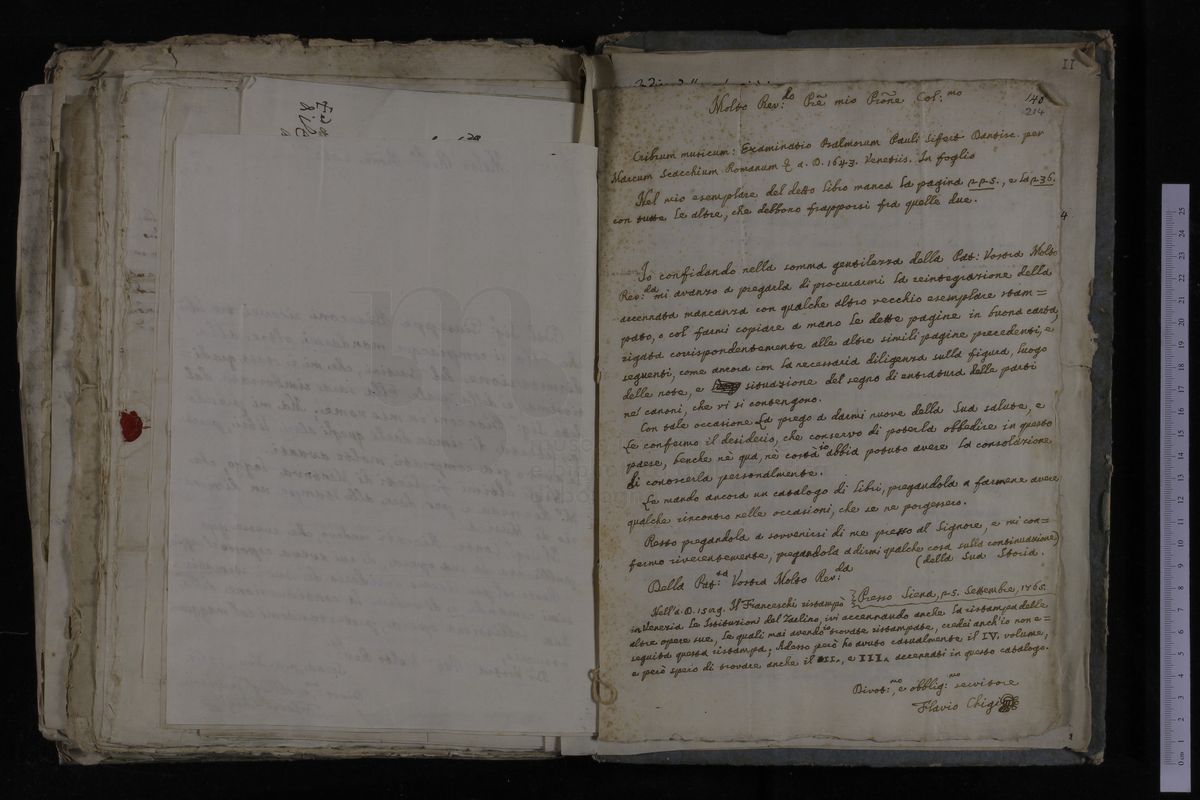 II
140
214
Molto Rev:do Prē mio Prōne Col:mo
Cribrum musicum: Examinatio Psalmorum Pauli Siffert Dantisc. per
Marcum Scacchium Romanum & a. D. 1643. Venetiis. In foglio
Nel mio esemplare del detto libro manca la pagina p.p.5., e la p.36.
con tutte le altre, che debbono frapporsi fra quelle due.
4
Io confidando nella somma gentilezza della Pat: Vostra Molto
Rev:da mi avanzo a pregarla di procurarmi la reintegrazione della
accennata mancanza con qualche altro vecchio esemplare stam=
pato, o col farmi copiare a mano le dette pagine in buona carta
rigata corrispondentemente alle altre simili pagine precedenti, e
seguenti, come ancora con la necessaria diligenza sulla figura, luogo
delle note, e situazione del segno di entratura delle parti
ne' canoni, che vi si contengono.
Con tale occasione La prego a darmi nuove della Sua salute, e
Le confermo il desiderio, che conservo di poterla obbedire in questo
paese, benche nè qua, nè costà io abbia potuto avere la consolazione
di conoscerla personalmente.
Le mando ancora un catalogo di Libri, pregandola a farmene avere
qualche rincontro nelle occasioni, che se ne porgessero.
Resto pregandola a sovvenirsi di me presso al Signore, e mi con=
fermo riverentemente, pregandola a dirmi qualche cosa sulla continuazione
(della Sua Storia.
Della Pat:tà Vostra Molto Rev:da
Presso Siena, p.5. Settembre, 1765.
Nell'a. D. 1589. Il Franceschi ristampò
in Venezia le Istituzioni del Zarlino, ivi accennando anche la ristampa delle
altre opere sue, le quali mai avendo io trovate ristampate, credei anch'io non e=
seguita questa ristampa; Adesso però ho avuto casualmente il IV. volume,
e però spero di trovare anche il II., e III., accennati in questo catalogo.
Divot:mo, e obblig:mo servitore
Flavio Chigi